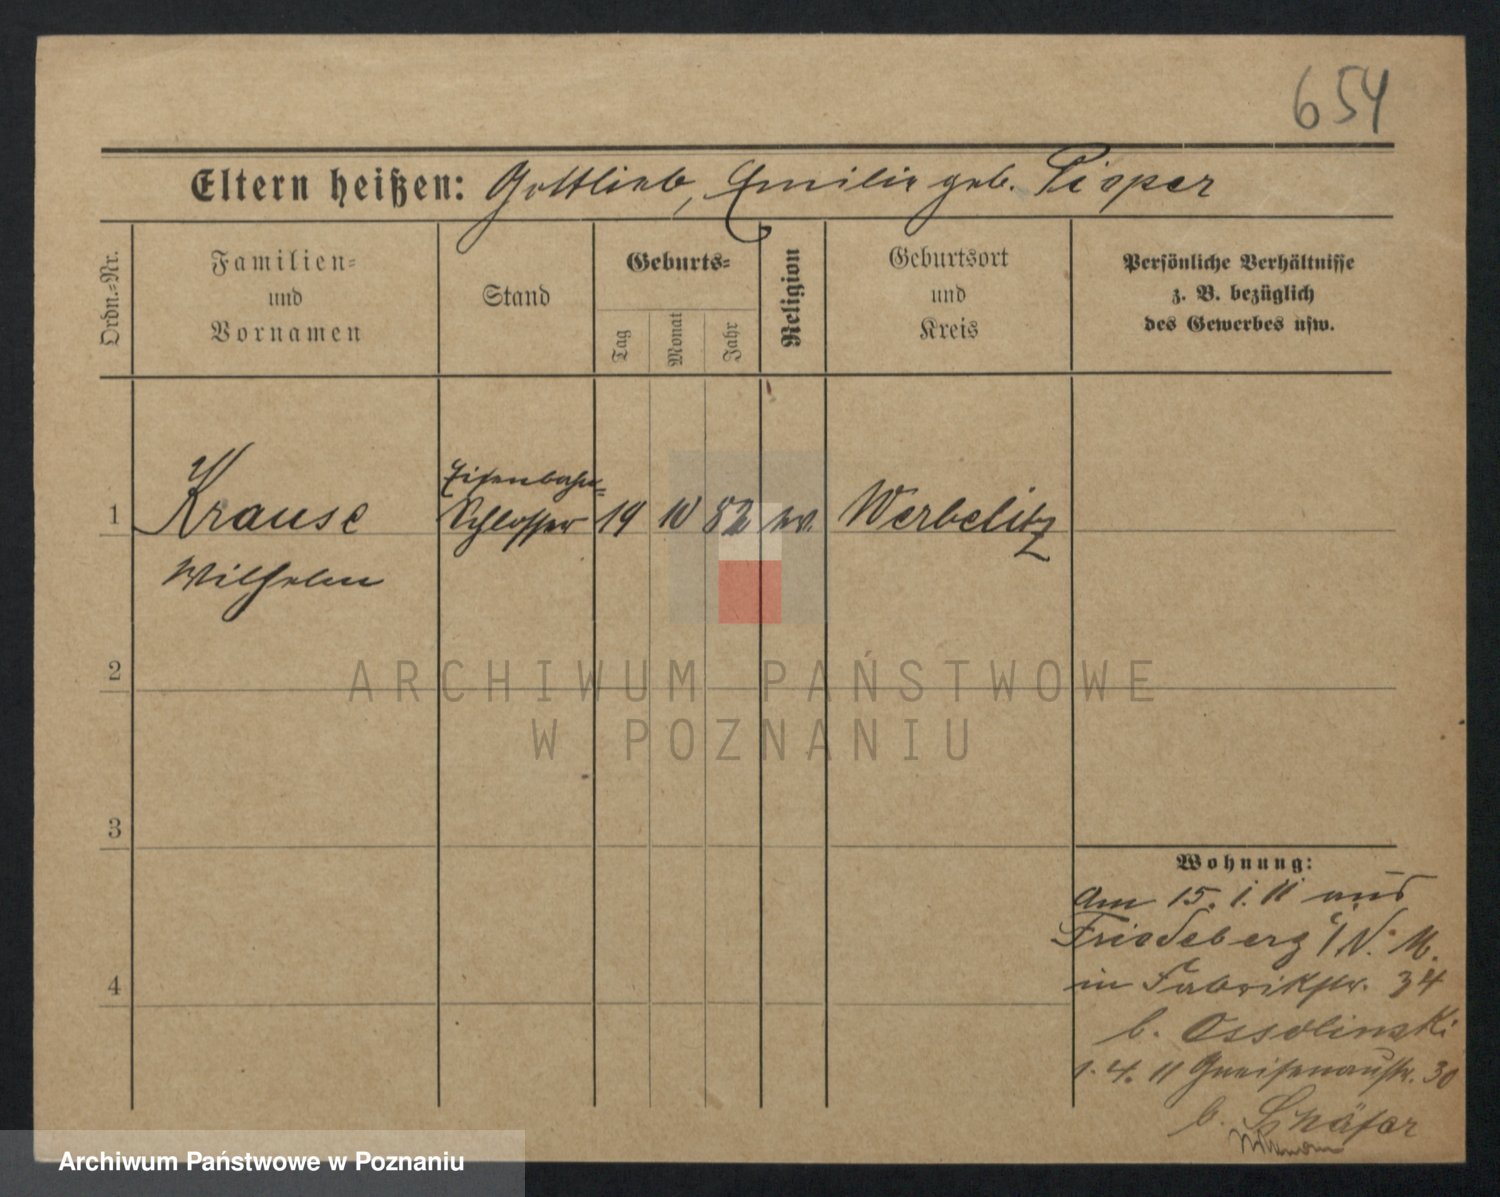 654
Eltern heißen: Gottlieb, Emilie geb. Pieper
Ordn.=Nr.
Familien=
und
Vornamen
Stand
Geburts=
Tag
Monat
Jahr
Religion
Geburtsort
und
Kreis
Persönliche Verhältnisse
z. B. bezüglich
des Gewerbes usw.
Eisenbahn=
1 Krause Schlosser 19 10 82 ev. Werbelitz
Wilhelm
2
3
4
Wohnung:
am 15. 1. 11 aus
Friedeberg /N. M.
in Fabrikstr. 34
b. Ossolinski
1. 4. 11 Gneisenaustr. 30
b. Schäfer
ARCHIWUM PAŃSTWOWE
W POZNANIU
Archiwum Państwowe w Poznaniu